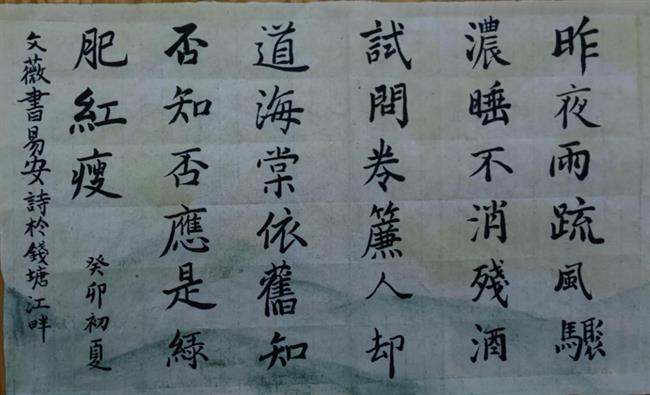 昨夜雨疏風驟
濃睡不消殘酒
試問卷簾人却
道海棠依舊知
否知否應是綠
肥紅瘦
癸卯初夏
文薇書易安詩於錢塘江畔